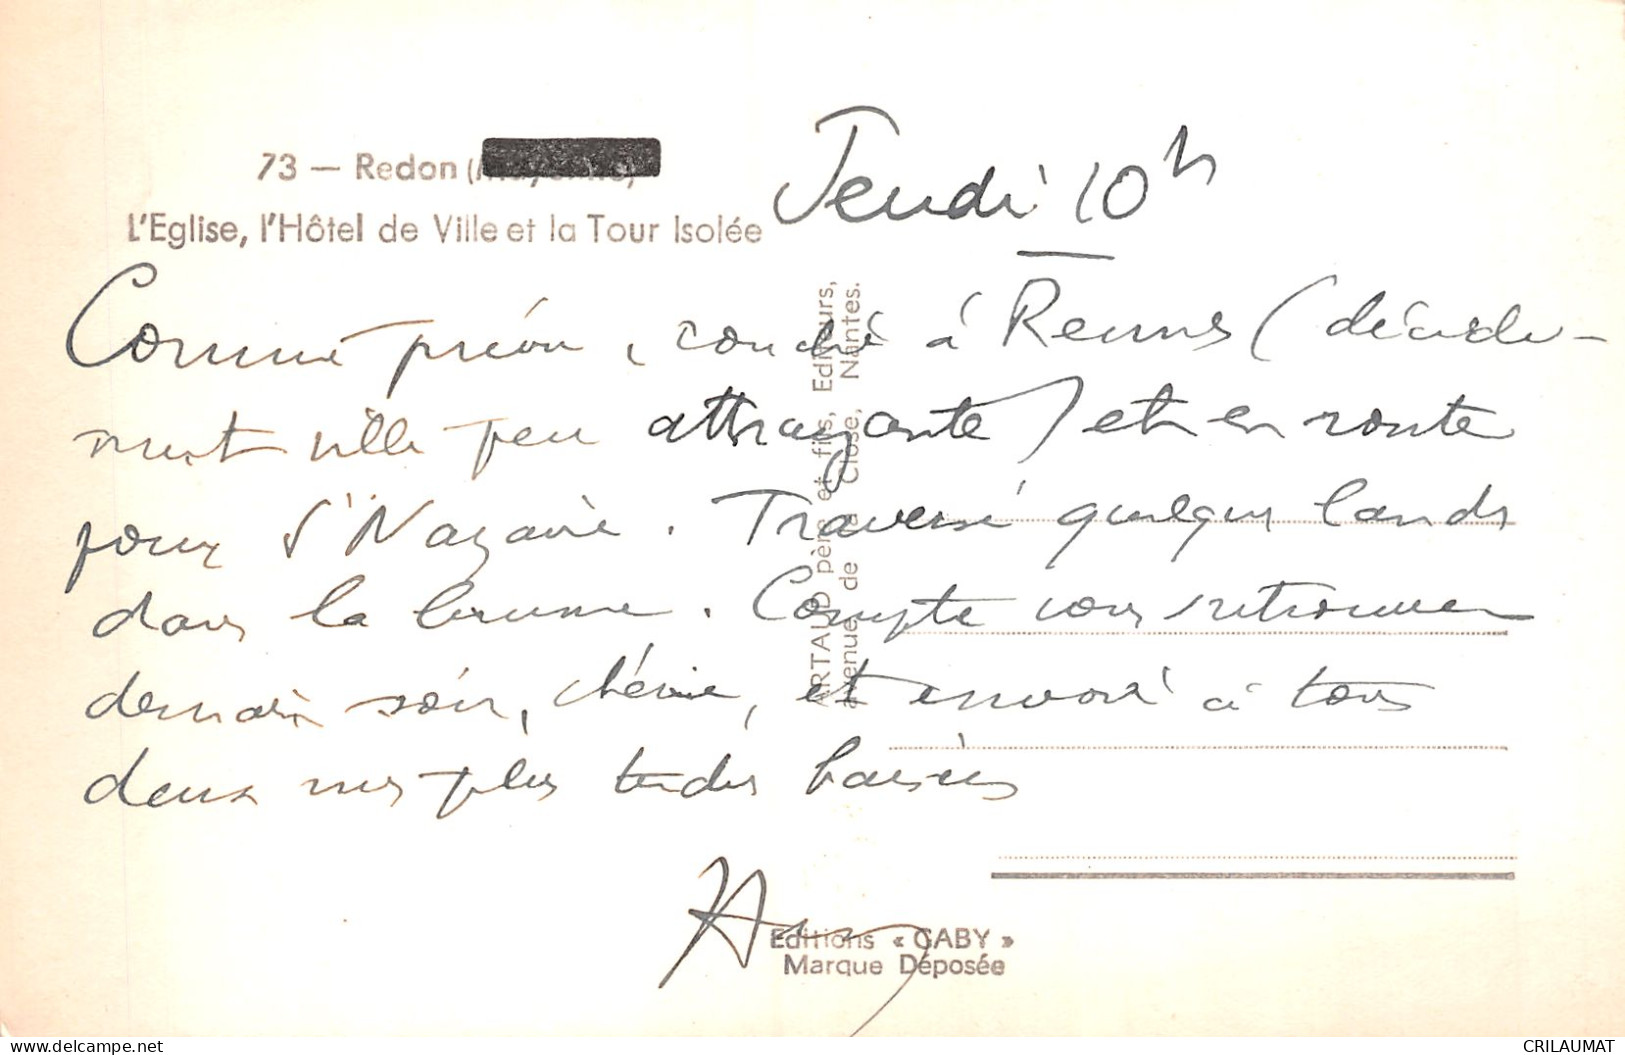 73 — Redon (
L'Eglise, l'Hôtel de Ville et la Tour Isolée
Jeudi 10h
Comme prévu, couché à Rennes (décidé-
ment ville peu attrayante) et en route
pour St Nazaire. Traversé quelques landes
dans la brume. Compte vous retrouver
demain soir, chérie, et envoie à tous
deux mes plus tendres baisers
ARTAUD père et fils, Editeurs,
avenue de la Close, Nantes.
Editions « GABY »
Marque Déposée
CRILAUMAT